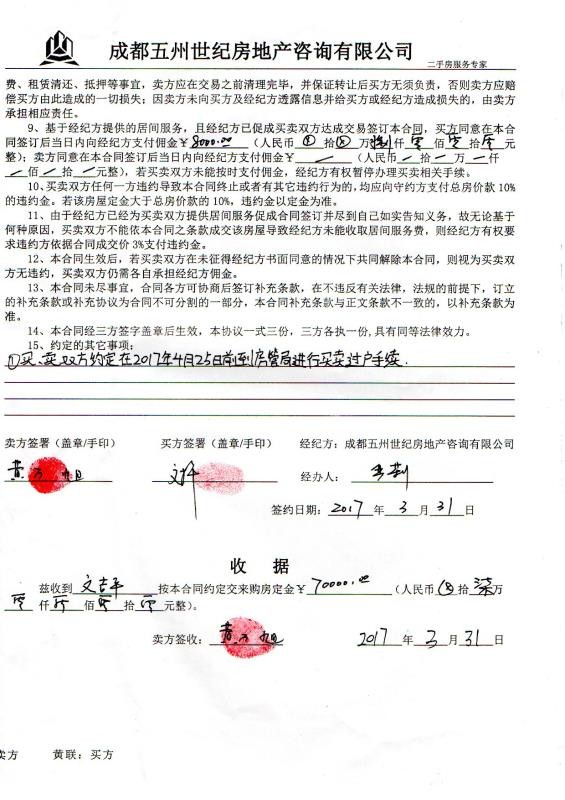 成都五州世纪房地产咨询有限公司
二手房服务专家
费、租赁清还、抵押等事宜，卖方应在交易之前清理完毕，并保证转让后买方无须负责，否则卖方应赔
偿买方由此造成的一切损失；因卖方未向买方及经纪方透露信息并给买方或经纪方造成损失的，由卖方
承担相应责任。
9、基于经纪方提供的居间服务，且经纪方已促成买卖双方达成交易签订本合同，买方同意在本合
同签订后当日内向经纪方支付佣金￥8000.00（人民币 拾 万捌仟零佰零拾零元
整）；卖方同意在本合同签订后当日内向经纪方支付佣金￥/（人民币/拾/万/仟
/佰/拾/元整），若买卖双方未能按时支付佣金，经纪方有权暂停办理买卖相关手续。
10、买卖双方任何一方违约导致本合同终止或者有其它违约行为的，均应向守约方支付总房价款 10%
的违约金。若该房屋定金大于总房价款的 10%，违约金以定金为准。
11、由于经纪方已经为买卖双方提供居间服务促成合同签订并尽到自己如实告知义务，故无论基于
何种原因，买卖双方不能依本合同之条款成交该房屋导致经纪方未能收取居间服务费，则经纪方有权要
求违约方依据合同成交价 3%支付违约金。
12、本合同生效后，若买卖双方在未征得经纪方书面同意的情况下共同解除本合同，则视为买卖双
方无违约，买卖双方仍需各自承担经纪方佣金。
13、本合同未尽事宜，合同各方可协商后签订补充条款，在不违反有关法律，法规的前提下，订立
的补充条款或补充协议为合同不可分割的一部分，本合同补充条款与正文条款不一致的，以补充条款为
准。
14、本合同经三方签字盖章后生效，本协议一式三份，三方各执一份，具有同等法律效力。
15、约定的其它事项：
①买、卖双方约定在2017年4月25日前到房管局进行买卖过户手续.
卖方签署（盖章/手印） 买方签署（盖章/手印） 经纪方：成都五州世纪房地产咨询有限公司
黄 旭 文 经办人：
签约日期：2017 年 3 月 31 日
收 据
兹收到 文吉平 按本合同约定交来购房定金￥70000.00（人民币 拾柒万
零仟零佰零拾零元整）。
卖方签收：黄 旭 2017 年 3 月 31 日
卖方 黄联：买方